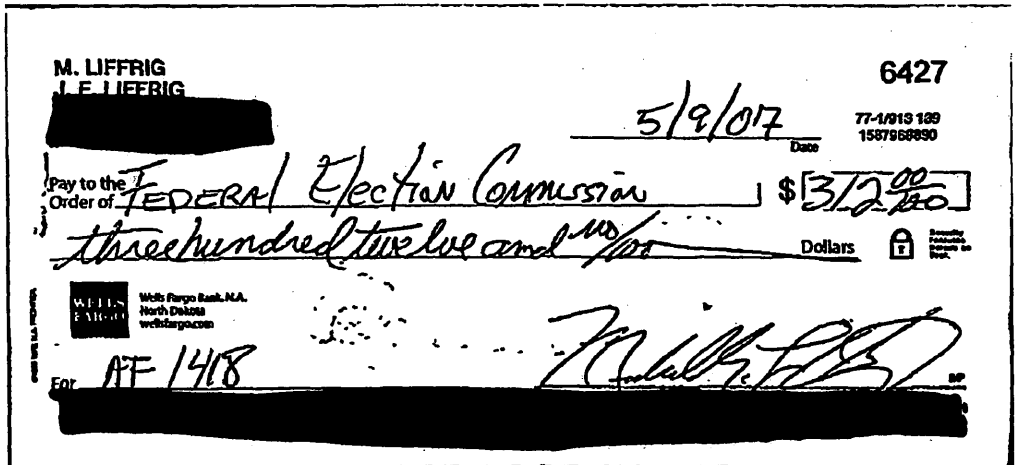 M. LIFFRIG
J. E. LIFFRIG
6427
5/9/07
Date
77-1/913 139
1587968890
Pay to the
Order of FEDERAL Election Commission $ 312 00/100
three hundred twelve and no/100 Dollars
WELLS
FARGO
Wells Fargo Bank, N.A.
North Dakota
wellsfargo.com
For AF 1418
MP